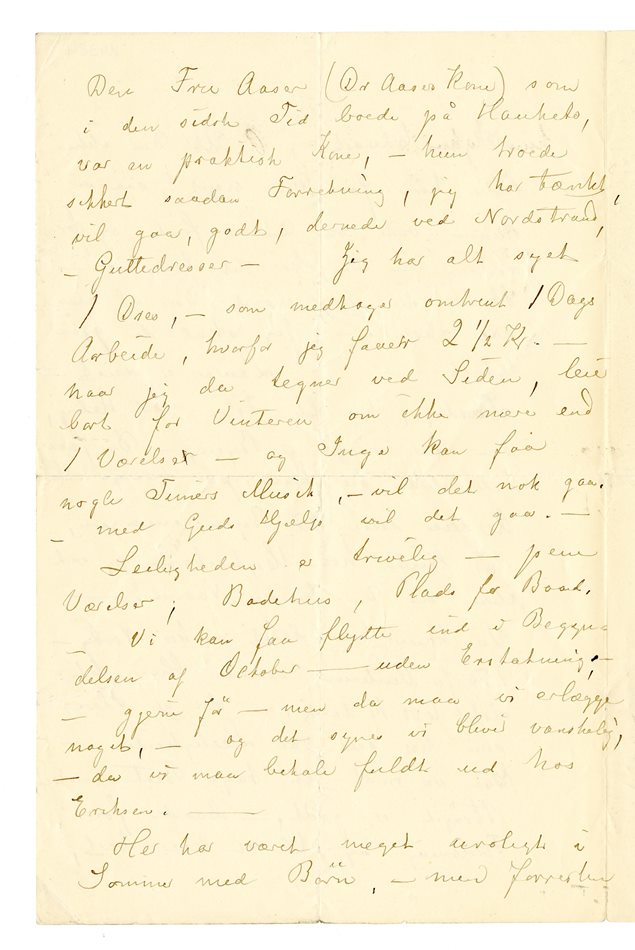 Den Fru Aaser (Dr Aasers Kone) som
i den sidste Tid boede på Hankets,
var en praktisk Kone, – hun troede
sikkert saadan Forretning, jeg har tænkt,
vil gaa, godt, dernede ved Nordstrand,
– Guttedresser – Jeg har alt syet
1 Dres, – som medtager omtrent 1 Dags
Arbeide, hvorfor jeg faaer 2 1/2 Kr. –
naar jeg da tegner ved Siden, leie
bort for Vinteren om ikke mere end
1 Værelse – og Inga kan faa
nogle Timers Musik, – vil det nok gaa.
– med Guds Hjælp vil det gaa. –
Leiligheden er trivelig – pene
Værelser, Badehus, Plads for Baad.
Vi kan faa flytte ind i Begyn-
delsen af October – uden Erstatning, –
– gjerne før – men da maa vi erlægge
noget, – og det synes vi blive vanskelig,
– da vi maa betale fuldt ud hos
Eriksen. –
Her har været meget uroligt i
Sommer med Børn, – men forresten